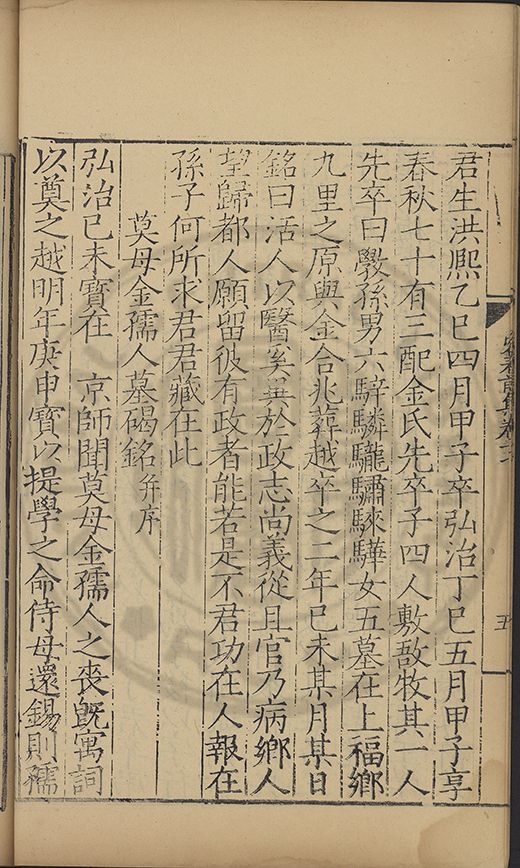 君生洪熙乙巳四月甲子卒弘治丁巳五月甲子享
春秋七十有三配金氏先卒子四人敷敔牧其一人
先卒曰斅孫男六騂驎驪驌騋驊女五墓在上福鄉
九里之原與金合兆葬越卒之二年巳未某月某日
銘曰活人以醫奚異於政志尚義從且官乃病鄉人
望歸都人願留彼有政者能若是不君功在人報在
孫子何所求君君藏在此
莫母金孺人墓碣銘并序
弘治巳未寳在 京師聞莫母金孺人之喪旣寓詞
以奠之越明年庚申寳以提學之命侍母還錫則孺
五